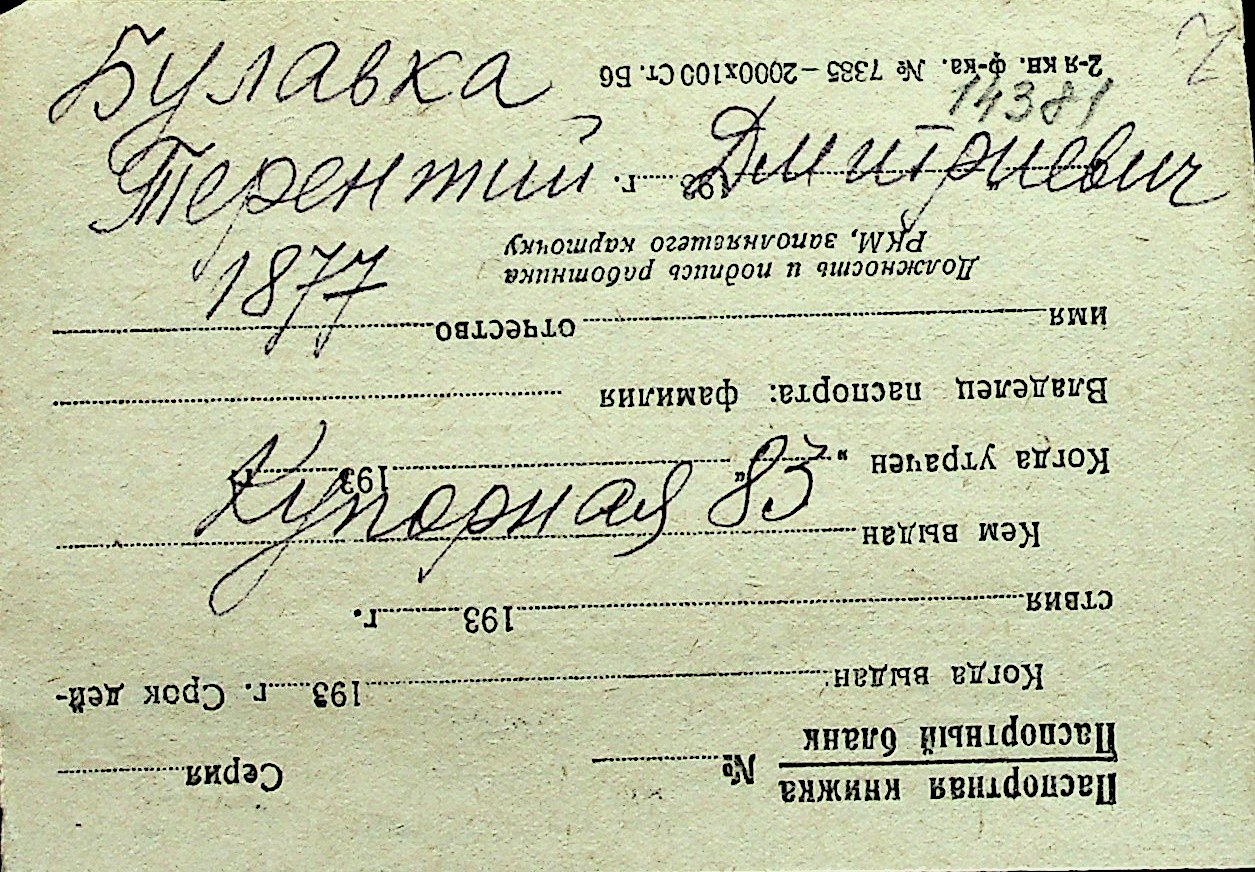 Булавка
Терентий Дмитриевич
1877
Купорная 83
14381
Паспортная книжка
Паспортный бланк № Серия
Когда выдан 193 г. Срок дей-
ствия 193 г.
Кем выдан
Когда утрачен „ “ 193 г.
Владелец паспорта: фамилия
имя отчество
Должность и подпись работника
РКМ, заполнявшего карточку
193 г.
2-я кн. ф-ка. № 7385–2000х100 Ст. Б6